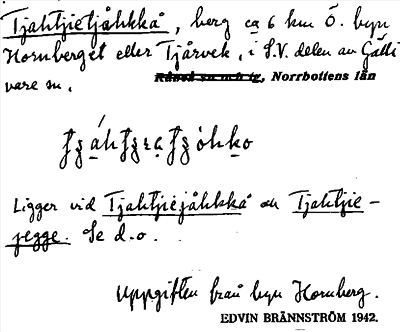 Tjahtjietjåhkkå, berg ca 6 km Ö. byn
Hornberget eller Tjårvek, i S.V. delen av Gálli
vare sn.
Norrbottens län
Ligger vid Tjahtjiejåhkkå och Tjahtjie-
jegge. Se d.o.
Uppgiften från byn Hornberg.
EDVIN BRÄNNSTRÖM 1942.